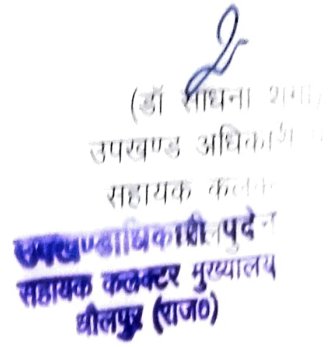 (डॉ साधना शर्मा)
उपखण्ड अधिकारी
सहायक कलक
उपखण्डाधिकारी पदेन
सहायक कलक्टर मुख्यालय
धौलपुर (राज०)